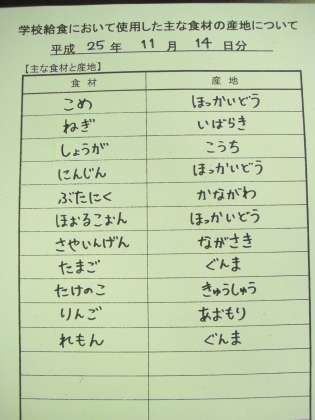 学校給食において使用した主な食材の産地について
平成 25 年 11 月 14 日分
【主な食材と産地】
食材 産地
こめ ほっかいどう
ねぎ いばらき
しょうが こうち
にんじん ほっかいどう
ぶたにく かながわ
ほおるこおん ほっかいどう
さやいんげん ながさき
たまご ぐんま
たけのこ きゅうしゅう
りんご あおもり
れもん ぐんま